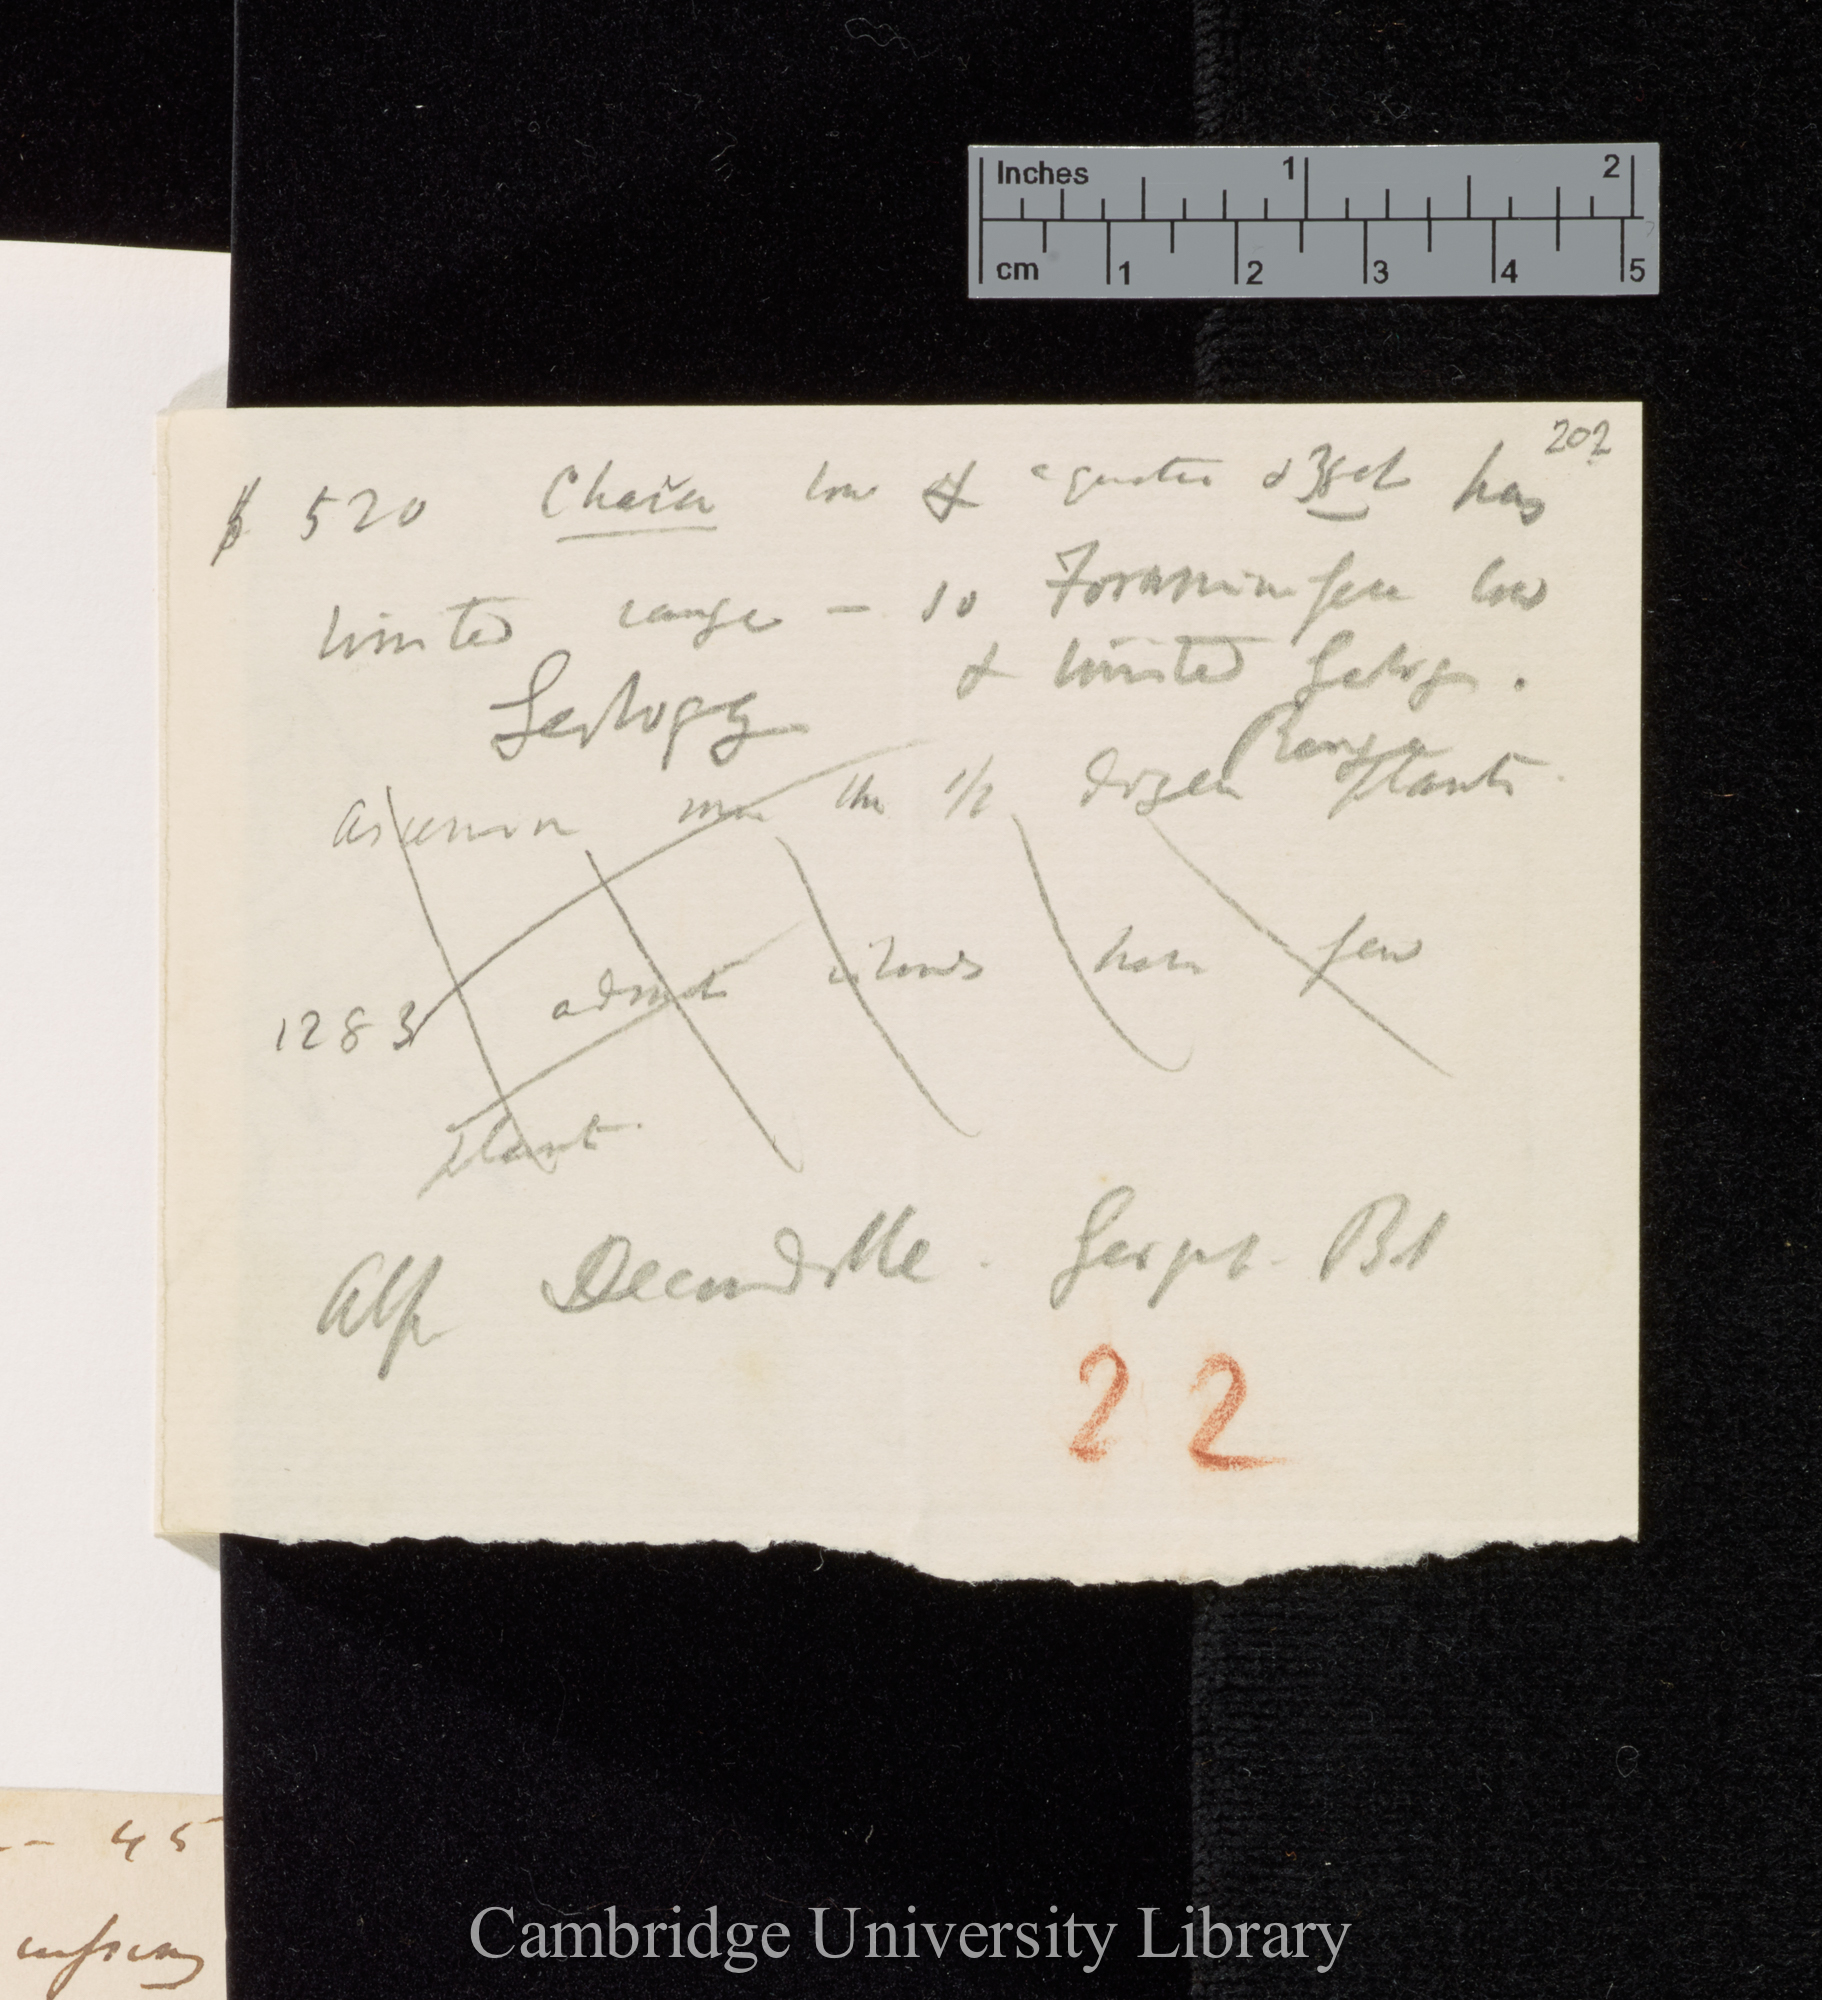 Inches 1 2
cm 1 2 3 4 5
202
p 520 Chara low & aquatic & yet has
limited range — so Foraminifera low
& limited Geolog.
Range
Geology
Ascension more than 1/2 dozen Plants.
1283 admits islands have few
plants.
Alph Decandolle. Geograph. Bot
22
-- 45
Cambridge University Library